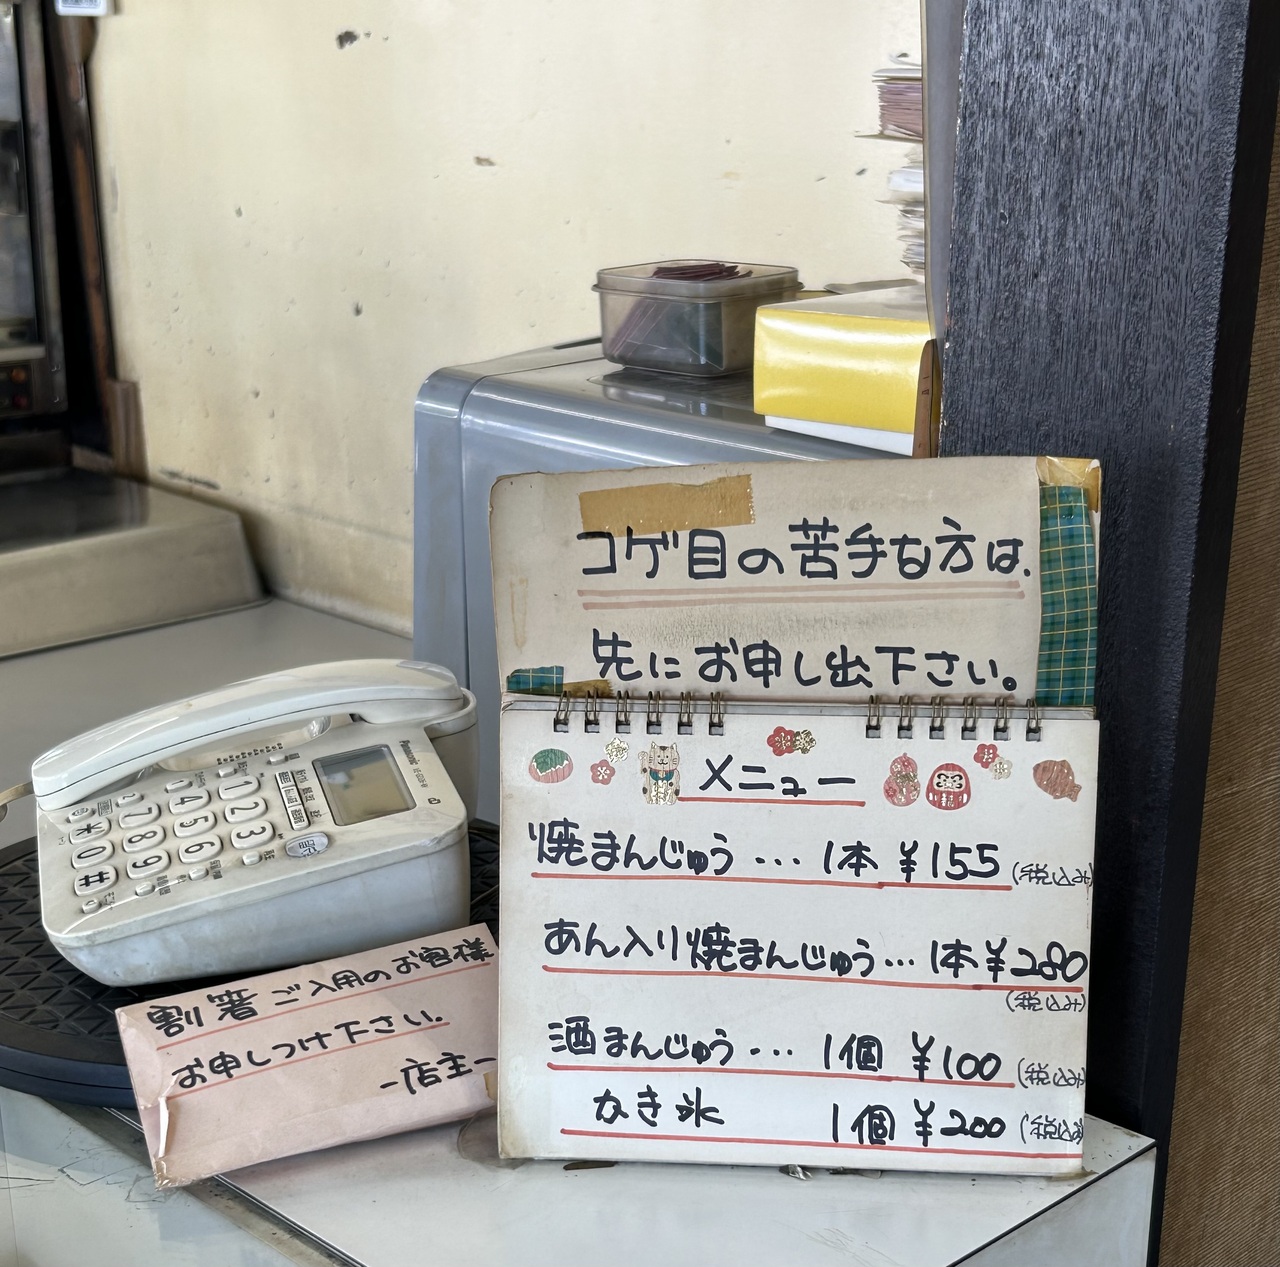 コゲ目の苦手な方は、
先にお申し出下さい。
メニュー
焼まんじゅう・・・1本 ¥155 (税込み)
あん入り焼まんじゅう・・・1本¥280
(税込み)
酒まんじゅう・・・1個 ¥100 (税込み)
かき氷 1個 ¥200 (税込み)
割箸ご入用のお客様
お申しつけ下さい。
-店主-
Panasonic
1 2 3
4 5 6
7 8 9
* 0 #